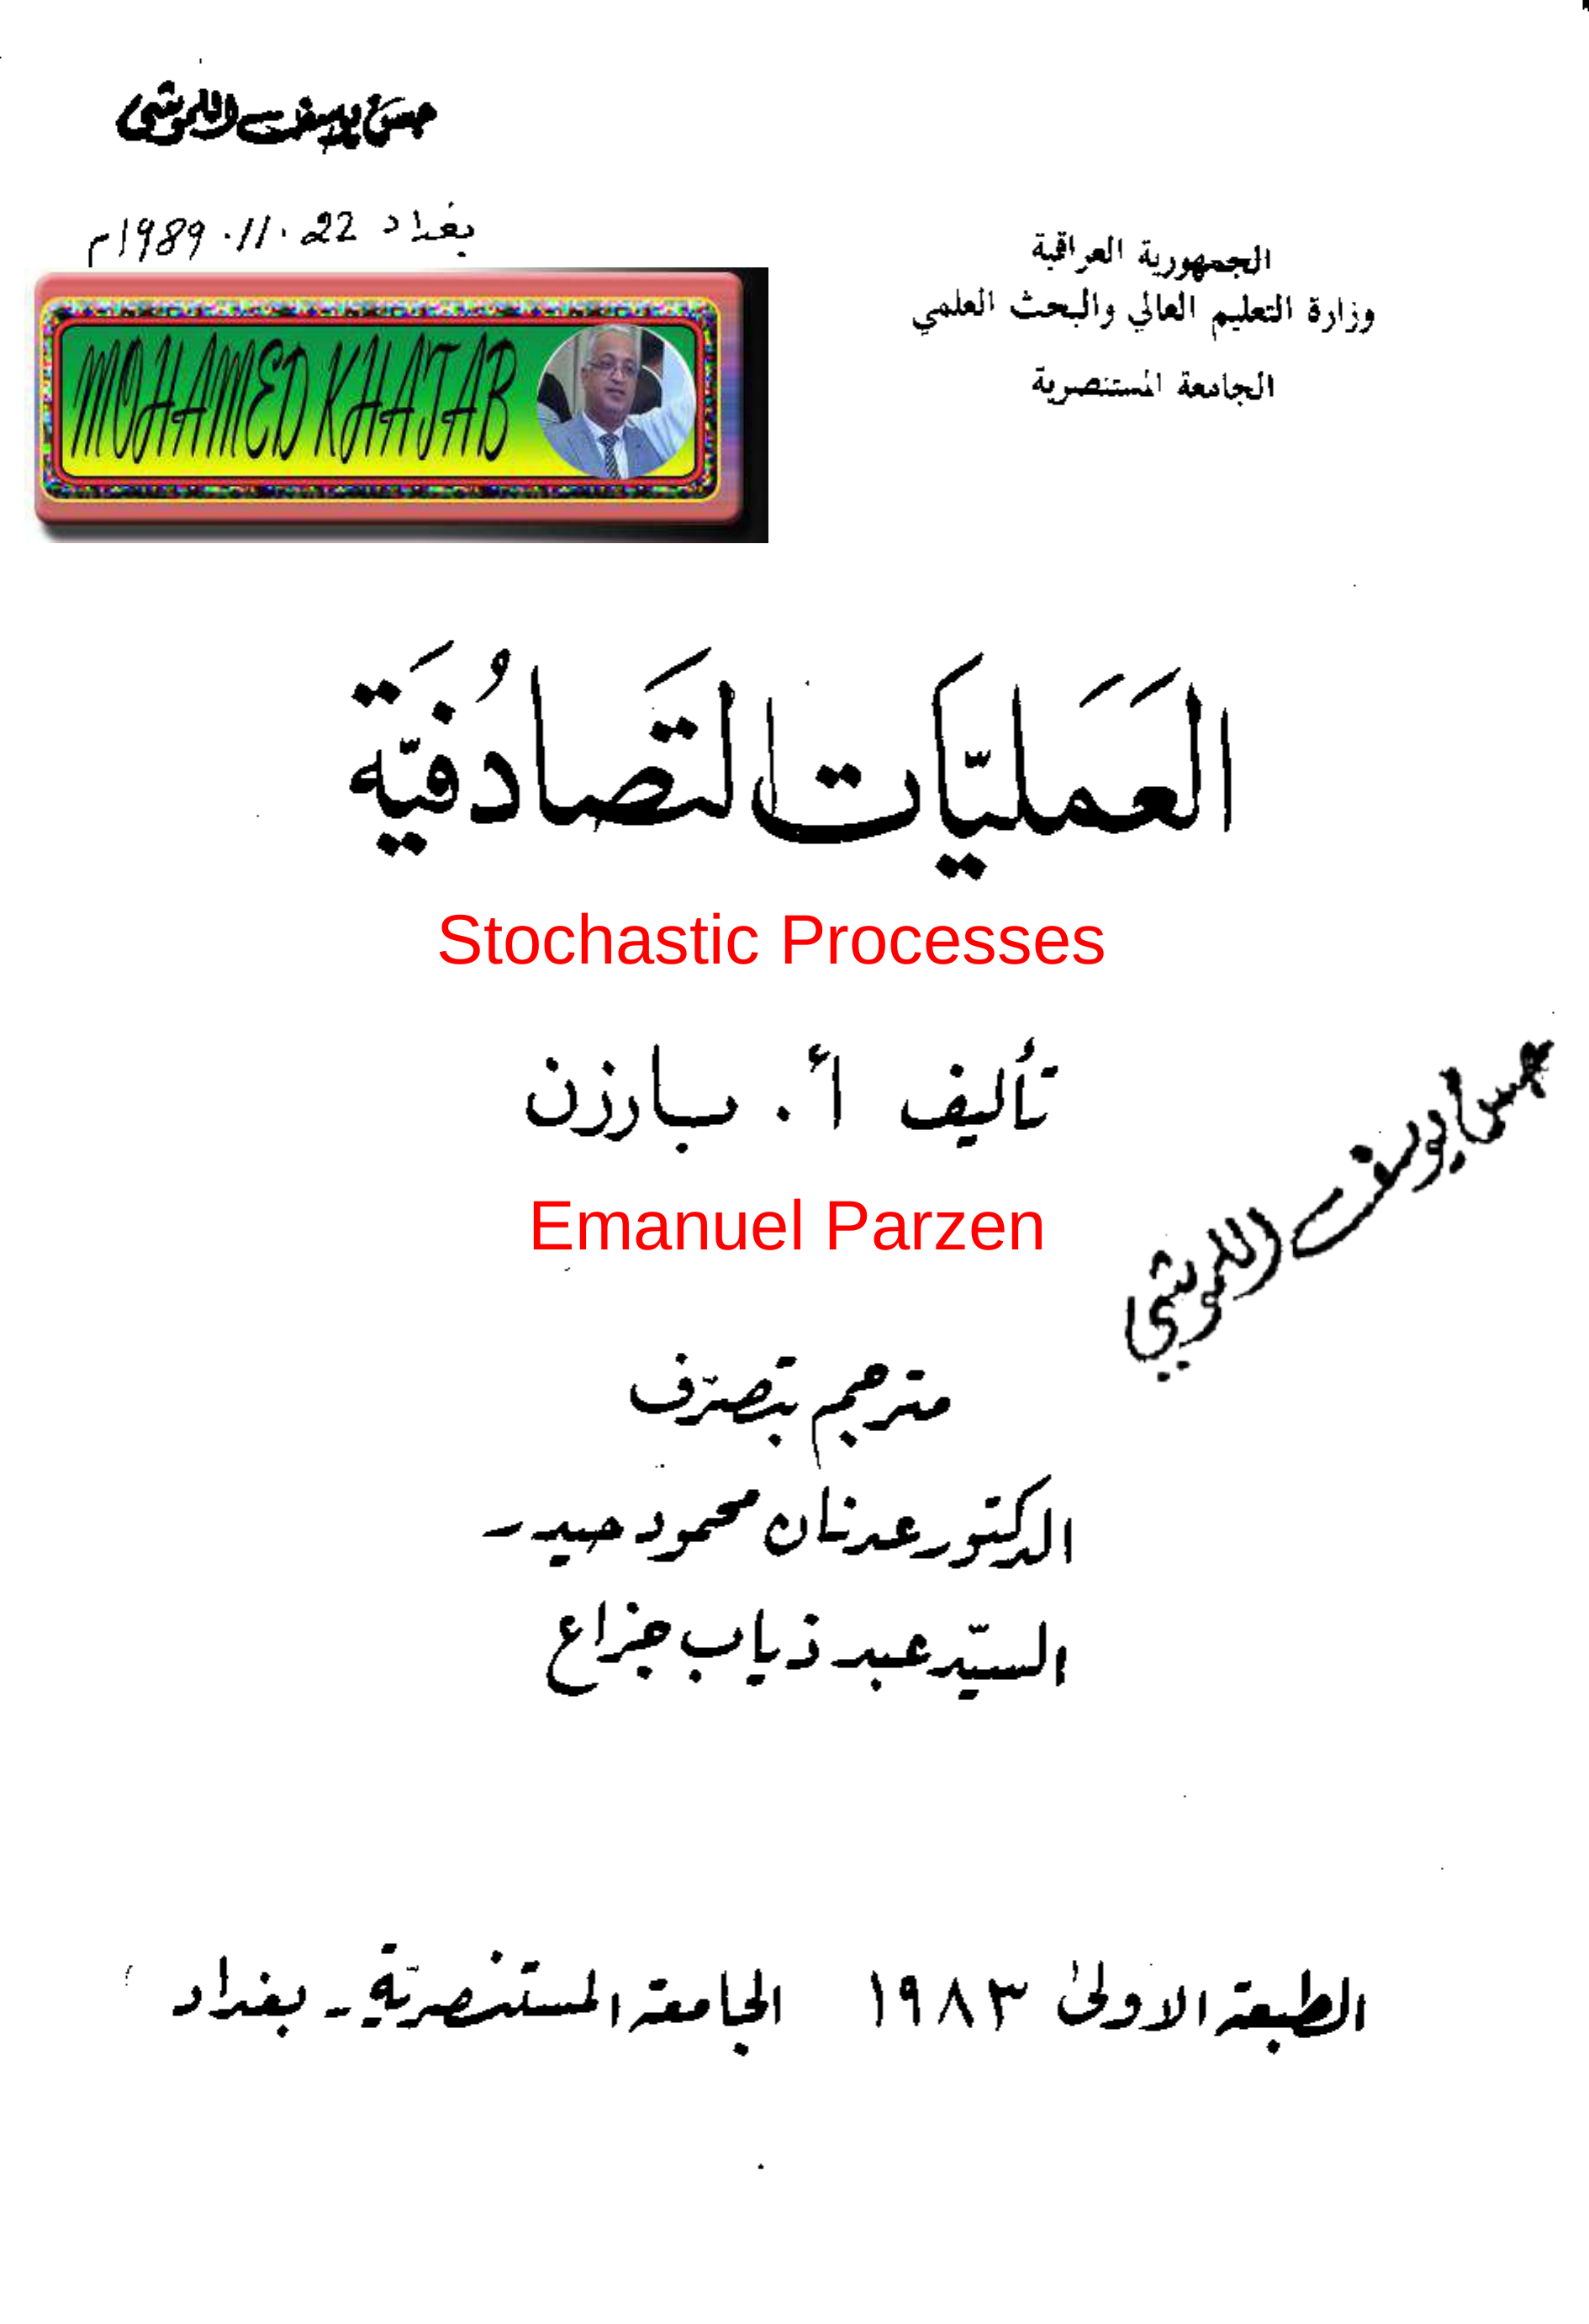 بغداد 22 .11. 1989م
MOHAMED KHATAB
الجمهورية العراقية
وزارة التعليم العالي والبحث العلمي
الجامعة المستنصرية
العَمَليّات التَصادُفيَّة
Stochastic Processes
تأليف أ. بارزن
Emanuel Parzen
حسن يوسف
مترجم بتصرّف
الدكتور عدنان محمود حيدر
السيّد عبد ذياب جزاع
الطبعة الاولىٰ ١٩٨٣ الجامعة المستنصريّة - بغداد